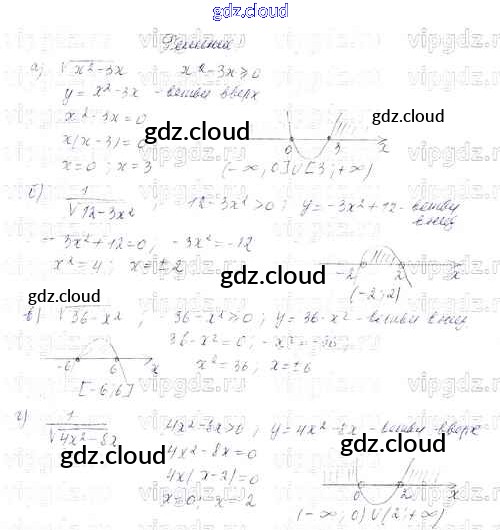 gdz.cloud
Решение
а) √x²-3x x²-3x≥0
y = x²-3x - ветви вверх
x²-3x=0
x(x-3)=0
x=0; x=3
0 3 x
(-∞; 0]∪[3; +∞)
gdz.cloud
gdz.cloud
б) 1/√12-3x² ; 12-3x²>0; y=-3x²+12 - ветви вниз
-3x²+12=0; -3x²=-12
x²=4; x=±2
-2 2 x
(-2; 2)
gdz.cloud
gdz.cloud
в) √36-x² ; 36-x²≥0; y=36-x² - ветви вниз
36-x²=0; -x²=-36;
x²=36; x=±6
-6 6 x
[-6; 6]
г) 1/√4x²-8x 4x²-8x>0; y=4x²-8x - ветви вверх
4x²-8x=0
4x(x-2)=0
x=0; x=2
0 2 x
(-∞; 0)∪(2; +∞)
gdz.cloud
gdz.cloud